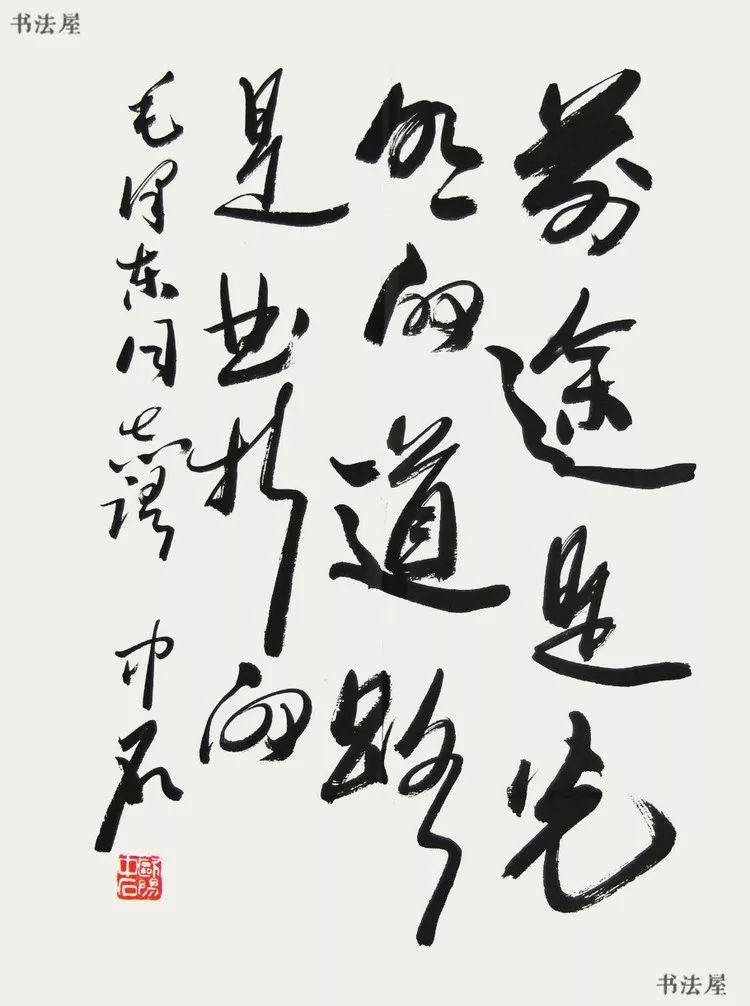 书法屋
前途是光
明的道路
是曲折的
毛泽东同志语 中石
欧阳中石
书法屋